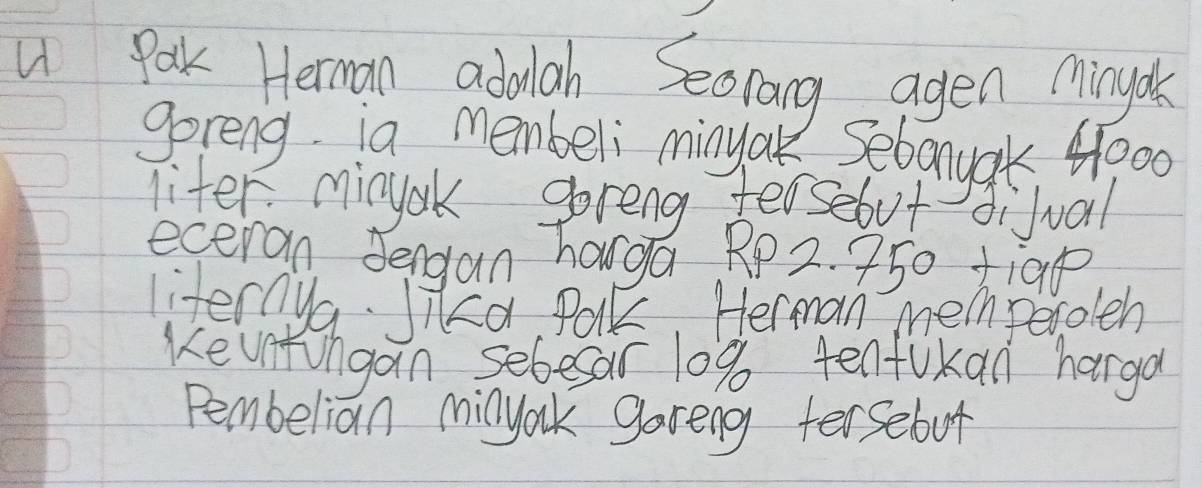 4 Pak Herman adalah Seorang agen Minyak
goreng. ia Membeli minyak Sebanyak 4000
liter. Minyak goreng tersebut dijual
eceran dengan harga Rp 2.750 tiap
liternya. Jika Pak Herman memperoleh
Keuntungan sebesar 10% tentukan harga
Pembelian minyak goreng tersebut